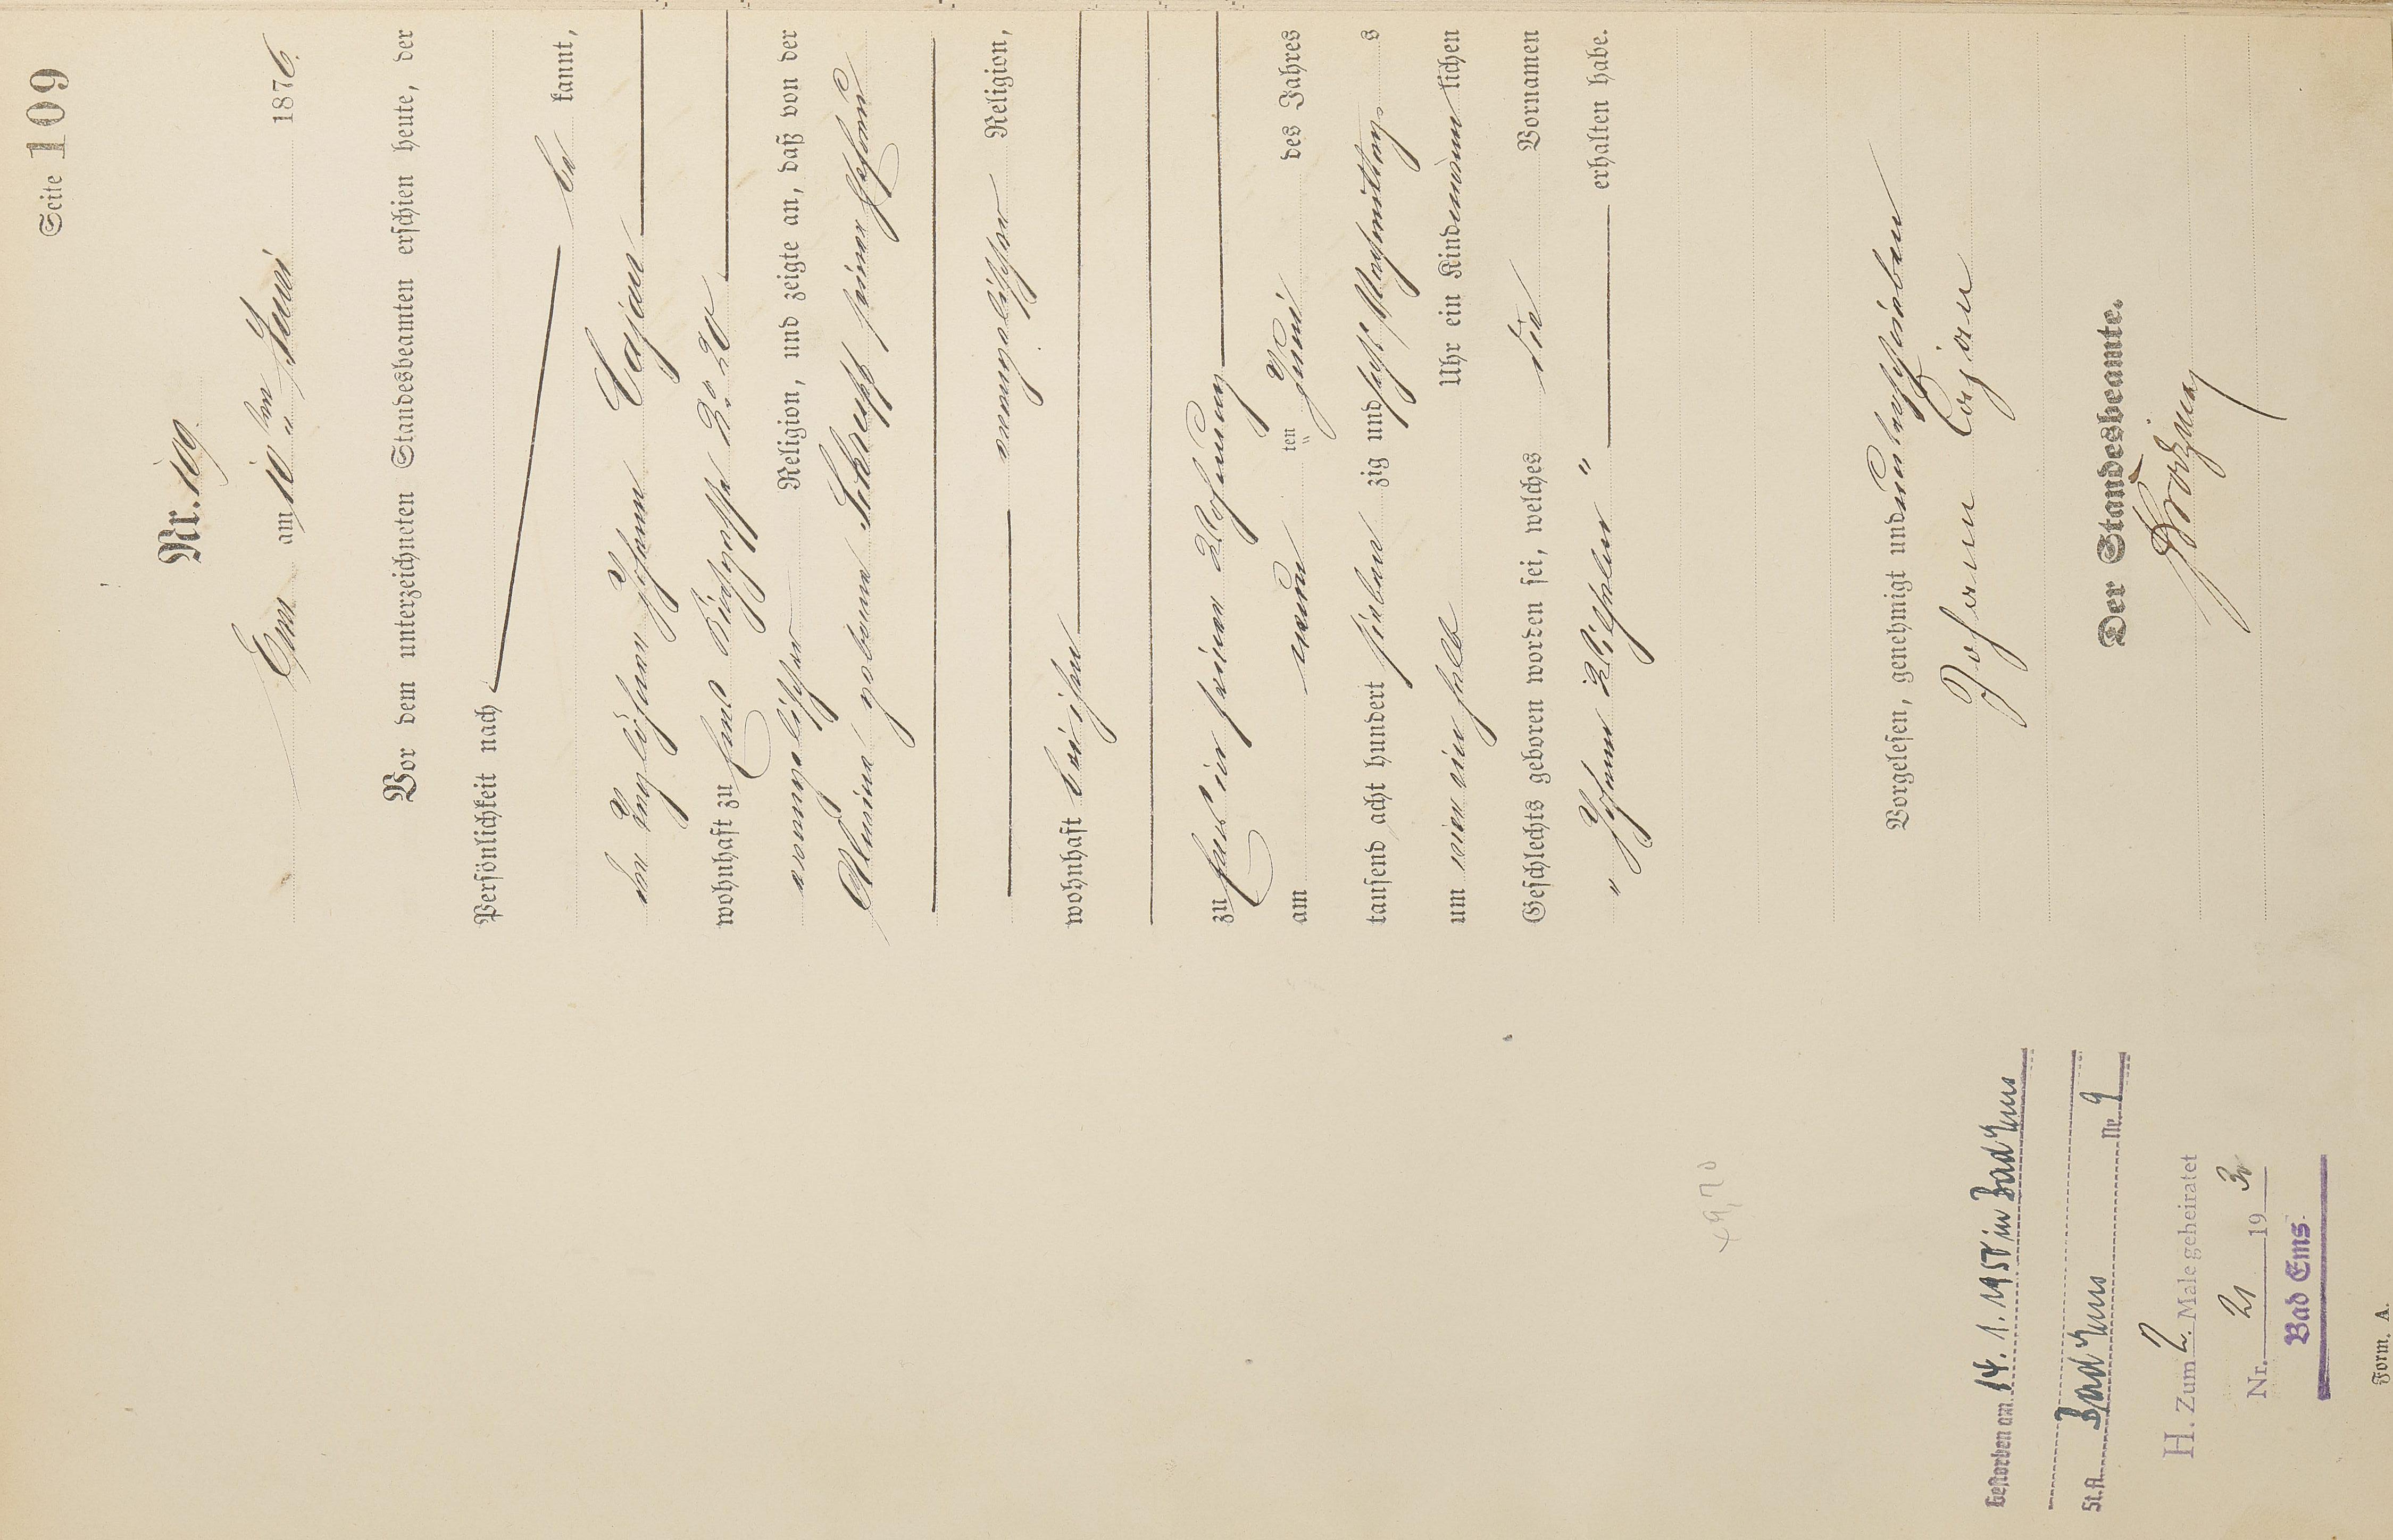 Seite 109
Nr. 109.
Ems am 10ten Juni 1876.
Vor dem unterzeichneten Standesbeamten erschien heute, der
Persönlichkeit nach
be kannt,
der Taglöhner Johann Cajan
wohnhaft zu Ems No. 20
evangelischer Religion, und zeigte an, daß von der
geborene seiner Ehefrau
evangelischer Religion,
wohnhaft bei ihm
zu Ems in seiner Wohnung
am neun ten Juni des Jahres
tausend acht hundert sieben zig und sechs Nachmittags
um ein halb Uhr ein Kind männ lichen
Geschlechts geboren worden sei, welches die Vornamen
" Johann Wilhelm " erhalten habe.
Vorgelesen, genehmigt und unterschrieben
Johann Cajan
Der Standesbeamte.
Gestorben am 14. 1. 1958 in Bad Ems
St.A. Bad Ems Nr. 9
H. Zum 2. Male geheiratet
Nr. 21 19 30
Bad Ems.
Form. A.